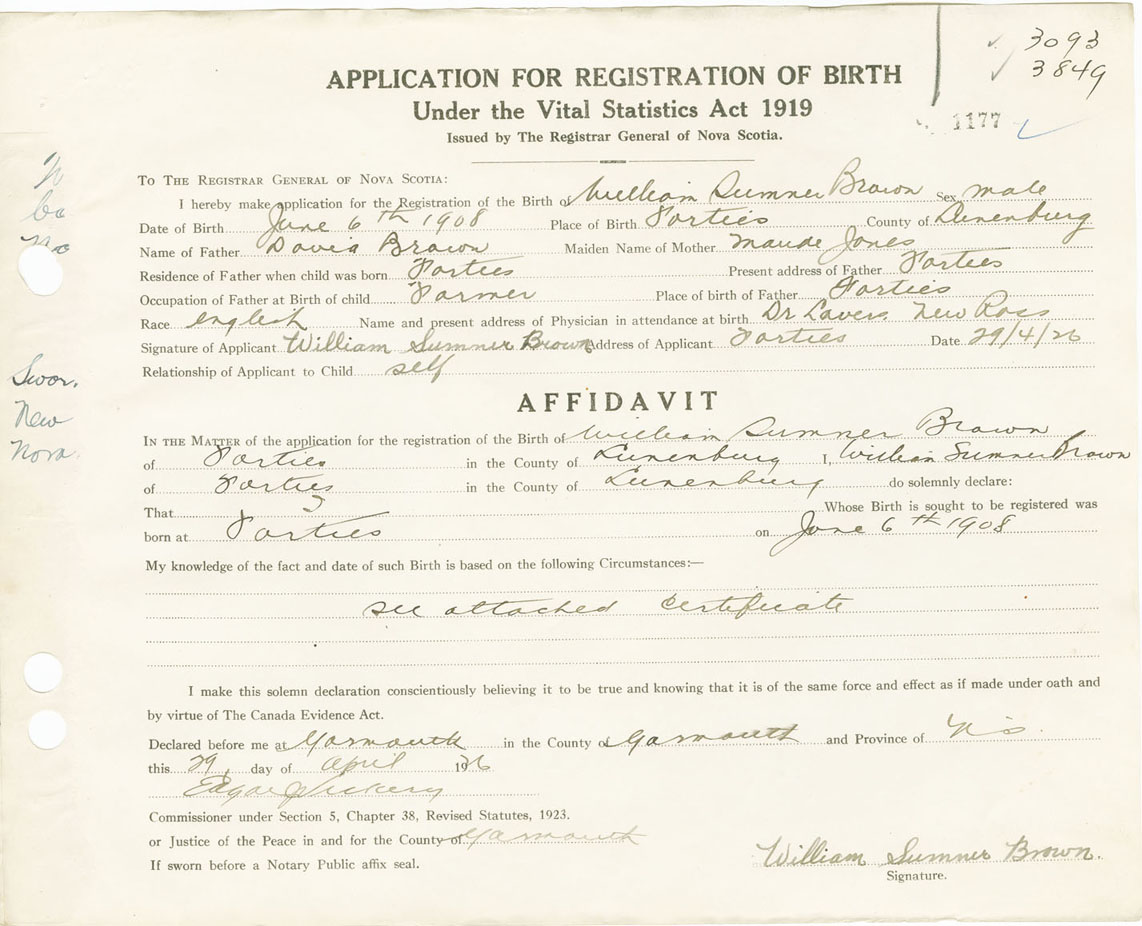 3093
3849
1177
APPLICATION FOR REGISTRATION OF BIRTH
Under the Vital Statistics Act 1919
Issued by The Registrar General of Nova Scotia.
TO THE REGISTRAR GENERAL OF NOVA SCOTIA:
I hereby make application for the Registration of the Birth of William Sumner Brown Sex male
Date of Birth June 6th 1908 Place of Birth Forties County of Lunenburg
Name of Father David Brown Maiden Name of Mother Maude Jones
Residence of Father when child was born Forties Present address of Father Forties
Occupation of Father at Birth of child Farmer Place of birth of Father Forties
Race english Name and present address of Physician in attendance at birth Dr Lavers New Ross
Signature of Applicant William Sumner Brown Address of Applicant Forties Date 29/4/26
Relationship of Applicant to Child self
AFFIDAVIT
IN THE MATTER of the application for the registration of the Birth of William Sumner Brown
of Forties in the County of Lunenburg I, William Sumner Brown
of Forties in the County of Lunenburg do solemnly declare:
That Whose Birth is sought to be registered was
born at Forties on June 6th 1908
My knowledge of the fact and date of such Birth is based on the following Circumstances:—
see attached certificate
I make this solemn declaration conscientiously believing it to be true and knowing that it is of the same force and effect as if made under oath and
by virtue of The Canada Evidence Act.
Declared before me at Yarmouth in the County of Yarmouth and Province of N.S.
this 29 day of April 1926
Commissioner under Section 5, Chapter 38, Revised Statutes, 1923.
or Justice of the Peace in and for the County of Yarmouth
If sworn before a Notary Public affix seal.
William Sumner Brown.
Signature.
Swor.
New
Nova